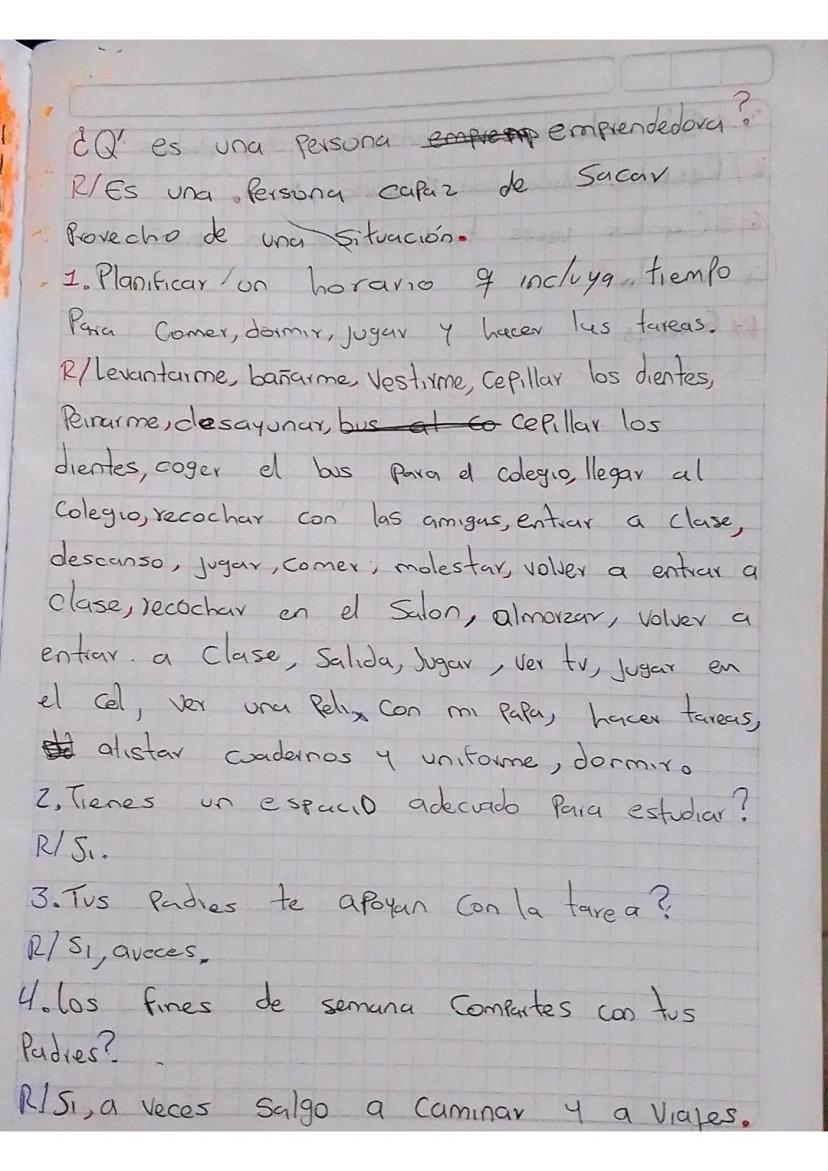 ¿Q' es una Persona emprendedora?
R/Es una Persona capaz de Sacar
Provecho de una Situación.
1. Planificar un horario q incluya tiempo
Para Comer, dormir, jugar y hacer las tareas.
R/levantarme, bañarme, Vestirme, Cepillar los dientes,
Peinarme, desayunar, bus al co cepillar los
dientes, coger el bus Para el colegio, llegar al
Colegio, recochar con las amigas, entrar a clase,
descanso, jugar, comer, molestar, volver a entrar a
clase, recochar en el Salon, almorzar, volver a
entrar a clase, Salida, Jugar, ver tv, jugar en
el cel, ver una Peli Con mi PaPa, hacer tareas,
alistar cuadernos y uniforme, dormir.
2. Tienes un espacio adecuado Para estudiar?
R/Si.
3. Tus Padres te aPoyan con la tarea?
R/Si, aveces.
4. los fines de semana Compartes con tus
Padres?
R/Si, a veces Salgo a Caminar y a Viajes.